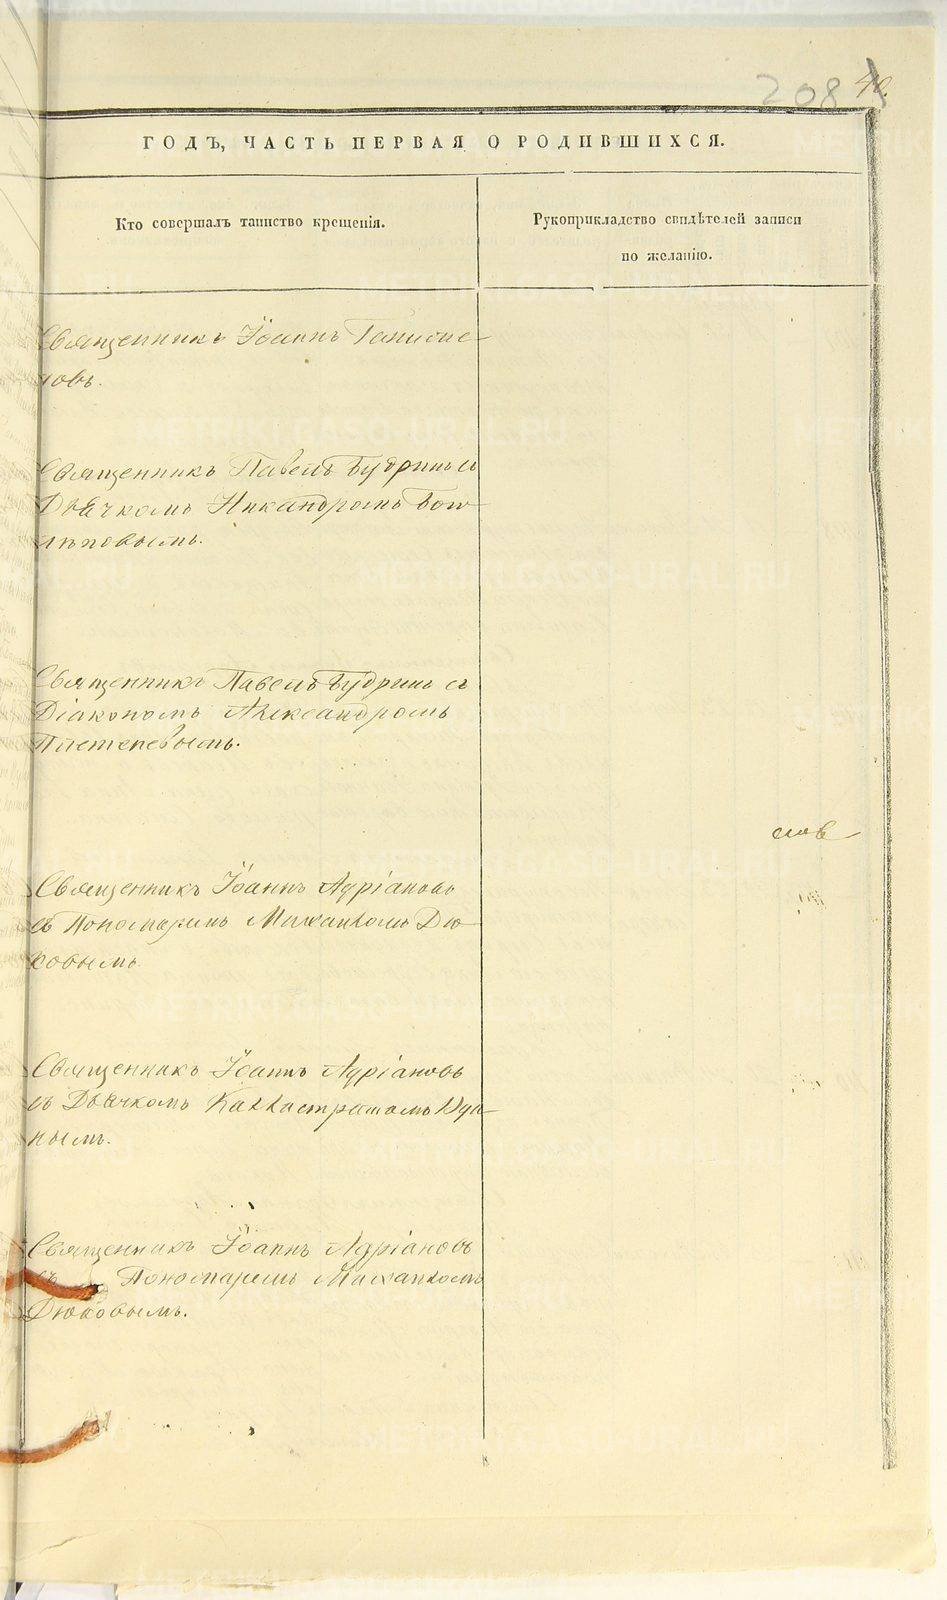 208
ГОДЪ, ЧАСТЬ ПЕРВАЯ О РОДИВШИХСЯ.
Кто совершалъ таинство крещенія.
Рукоприкладство свидѣтелей записи
по желанію.
Священникъ Іоаннъ
новъ.
Священникъ Павелъ Будринъ съ
Дьячкомъ Никандромъ
Священникъ Павелъ Будринъ съ
Діакономъ Александромъ
Плетеневымъ.
Священникъ Іоаннъ Адріановъ
съ Пономаремъ Михаиломъ Дю-
ковымъ
Священникъ Іоаннъ Адріановъ
съ Дьячкомъ Каллистратомъ Уда-
нымъ.
Священникъ Іоаннъ Адріановъ
съ Пономаремъ Михаиломъ
Дюковымъ.
METRIKI.GASO-URAL.RU